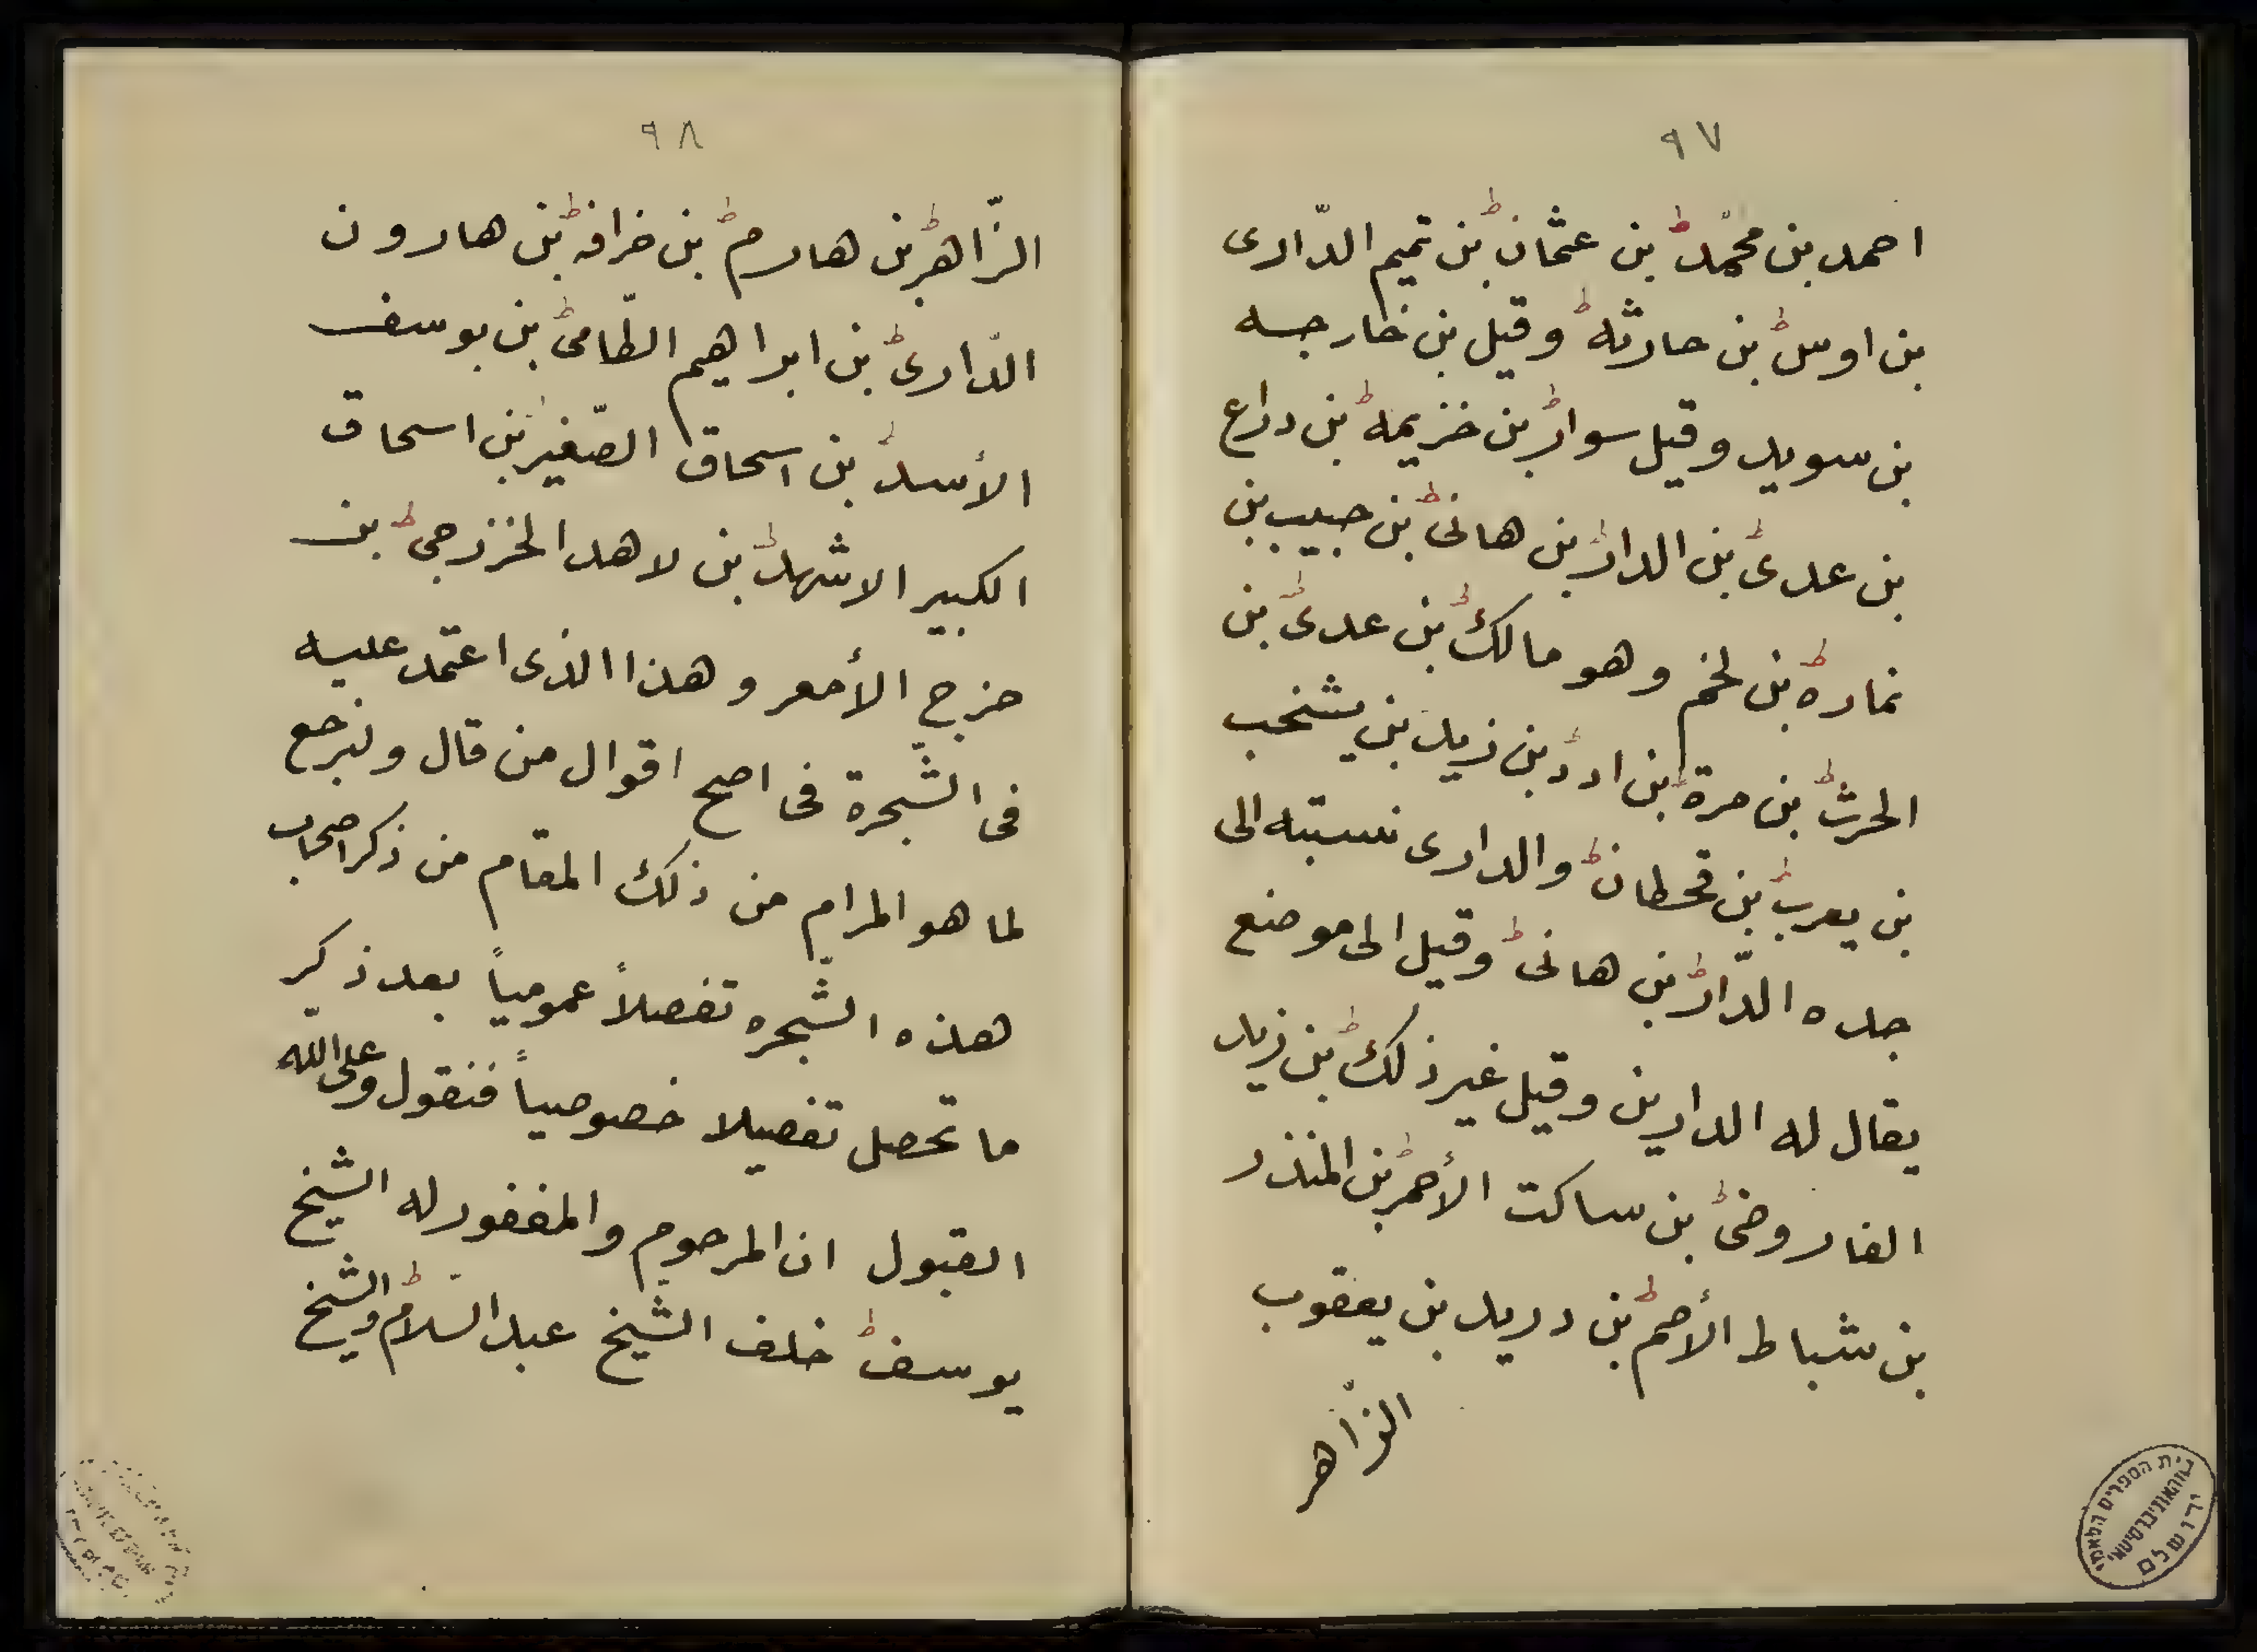 ٩٧
احمد بن محمّد بن عثمان بن تميم الدّارى
بن اوس بن حارثه وقيل بن خارجه
بن سويد وقيل سوار بن خزيمه بن دراع
بن عدى بن الدار بن هانى بن حبيب بن
نماره بن لخم وهو مالك بن عدى بن
الحرث بن مرة بن ادد بن زيد بن يشخب
بن يعرب بن قحطان والدارى نسبته الى
جده الدّار بن هانى وقيل الى موضع
يقال له الدارين وقيل غير ذلك بن زيد
الفاروضى بن ساكت الأحمر بن المنذر
بن شباط الأصم بن دريد بن يعقوب
الزّاهر
٩٨
الزّاهر بن هارم بن خرافه بن هارون
الدّارى بن ابراهيم الطّامى بن يوسف
الأسد بن اسحاق الصّغير بن اسحاق
الكبير الاشهد بن لاهد الخزرجى بن
خزرج الأمعر وهذا الذى اعتمد عليه
فى الشّجرة فى اصح اقوال من قال ونرجع
لما هو المرام من ذلك المقام من ذكر اصحاب
هذه الشّجره تفصلاً عمومياً بعد ذكر
ما تحصل تفصيلا خصوصياً فنقول وعلى الله
القبول ان المرحوم والمغفور له الشيخ
يوسف خلف الشّيخ عبد السّلام والشيخ
בית הספרים הלאומי
והאוניברסיטאי
ירושלים